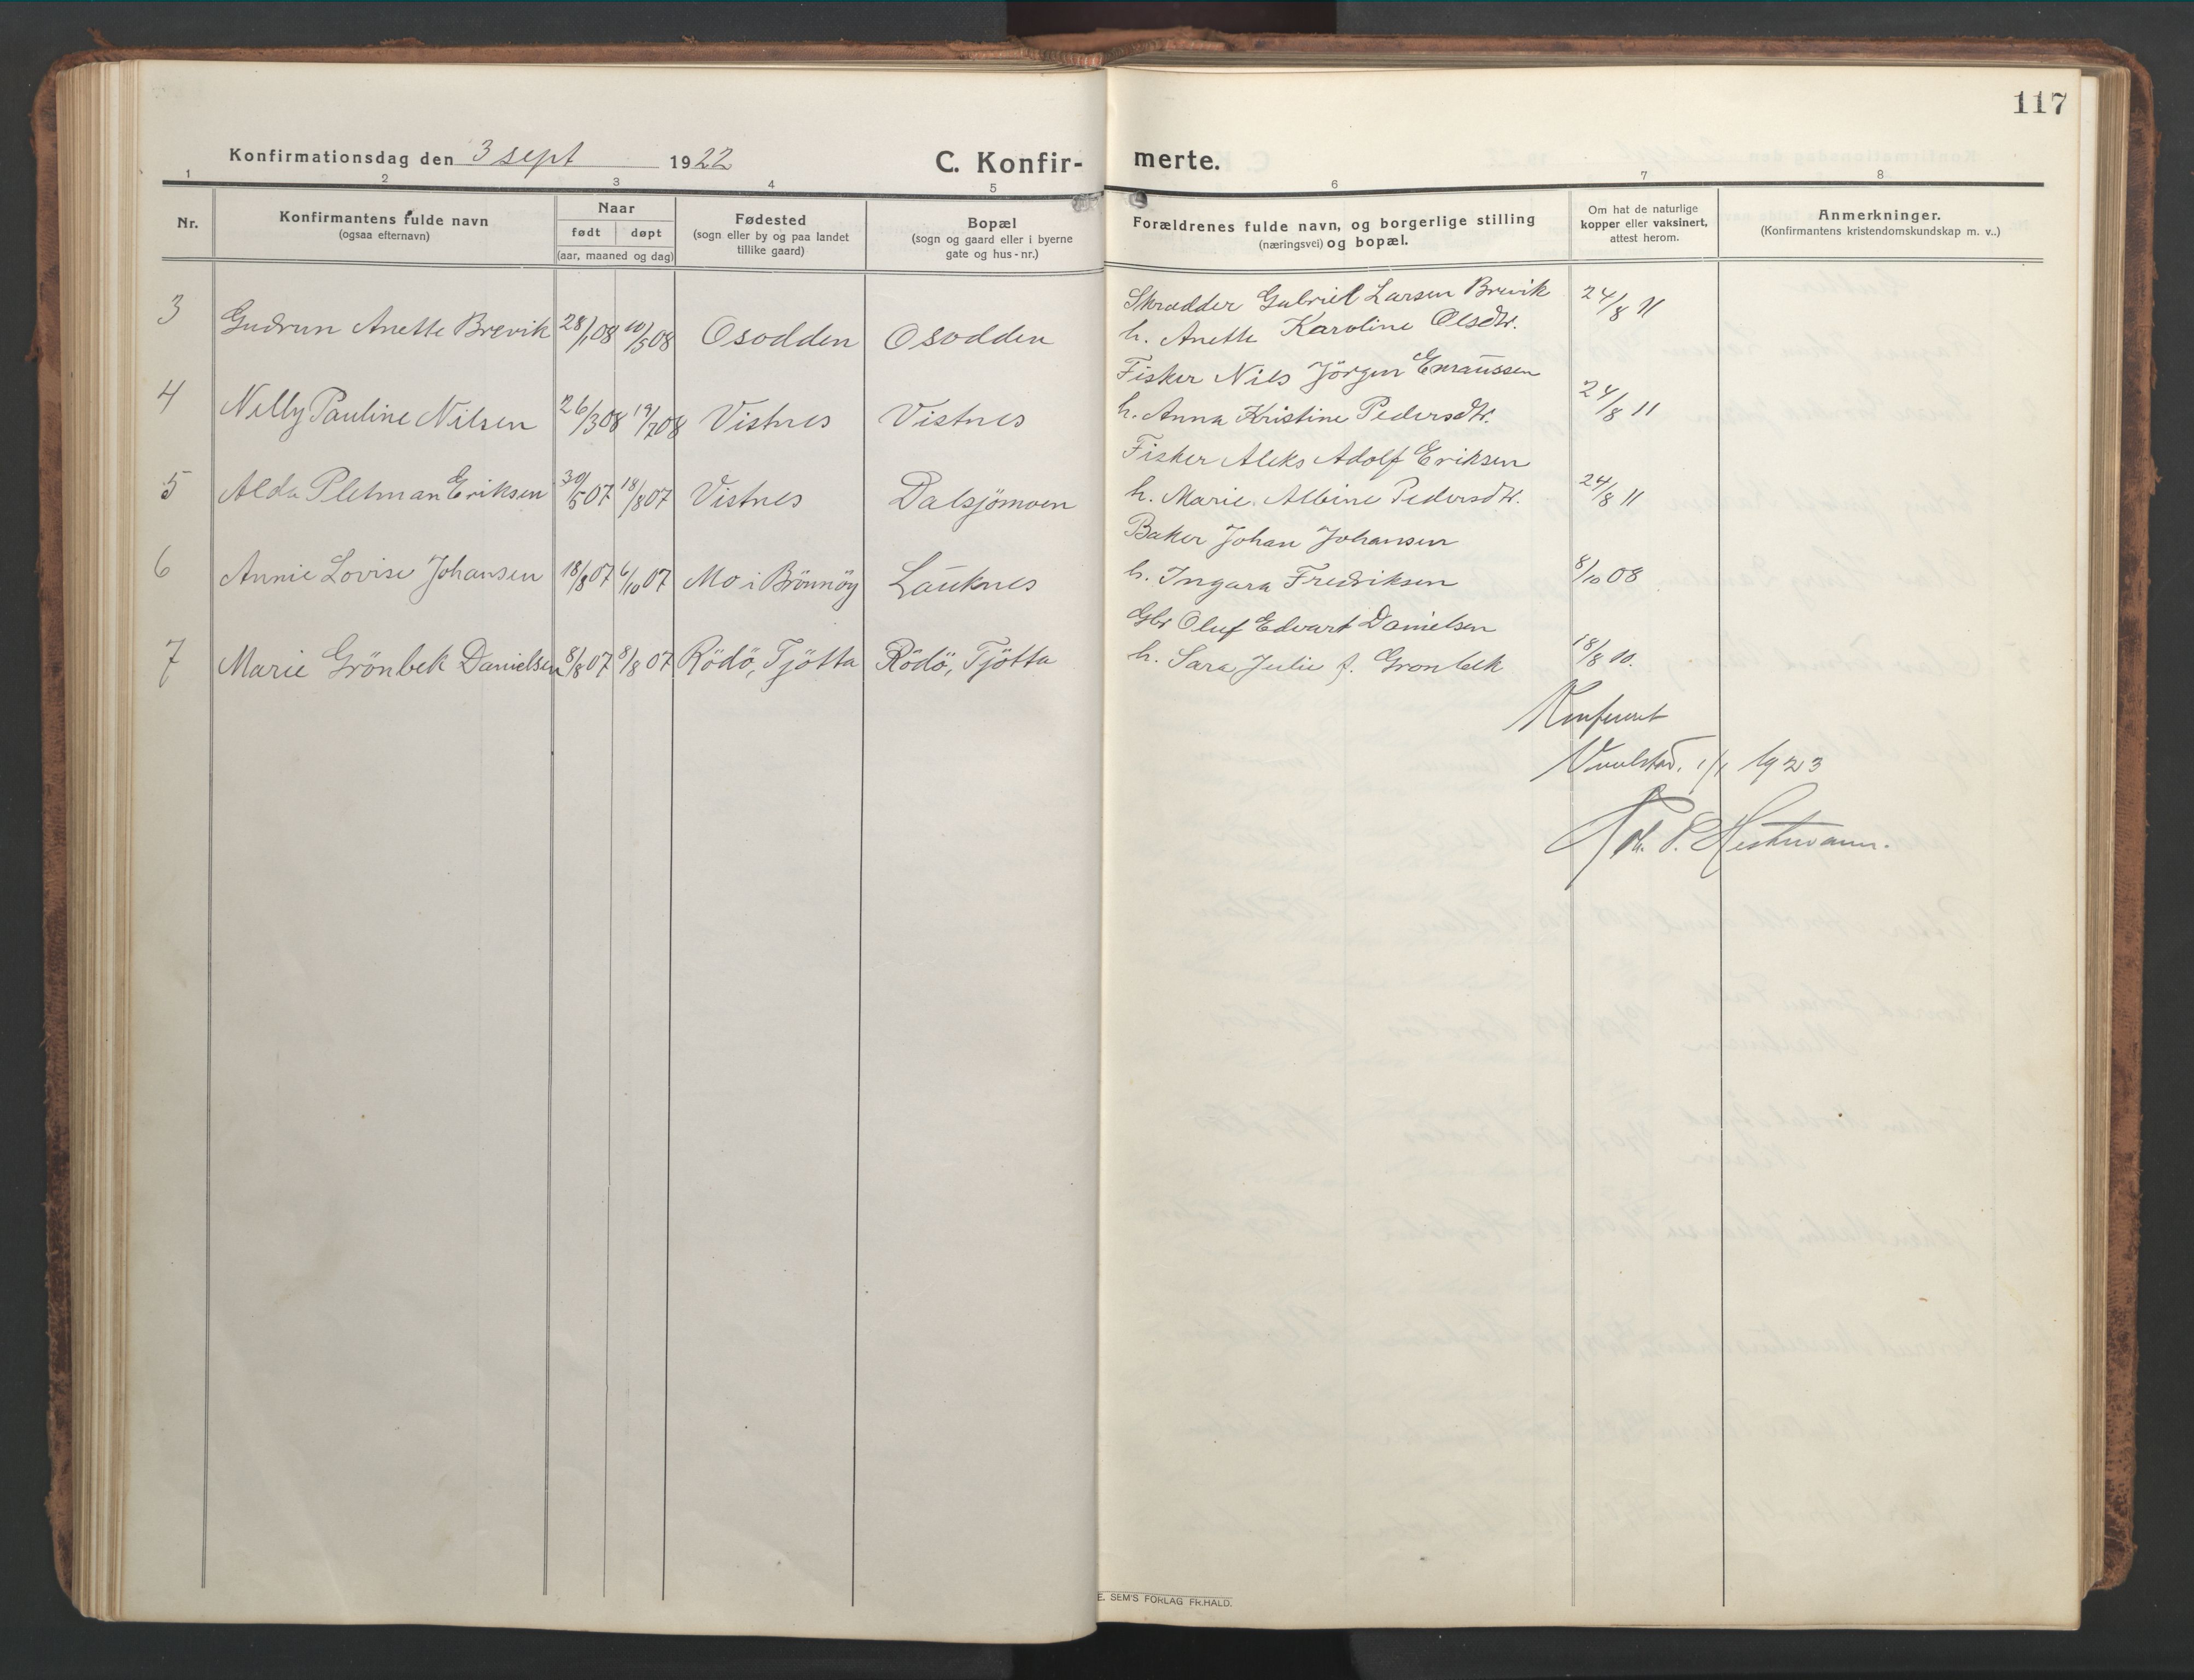 117
Konfirmationsdag den 3 sept 1922
C. Konfir- merte.
1 2 3 4 5 6 7 8
Nr.
Konfirmantens fulde navn
(ogsaa efternavn)
Naar
født døpt
(aar, maaned og dag)
Fødested
(sogn eller by og paa landet
tillike gaard)
Bopæl
(sogn og gaard eller i byerne
gate og hus-nr.)
Forældrenes fulde navn, og borgerlige stilling
(næringsvei) og bopæl.
Om hat de naturlige
kopper eller vaksinert,
attest herom.
Anmerkninger.
(Konfirmantens kristendomskundskap m. v..)
3 Gudrun Anette Brevik 28/1 08 10/5 08 Osodden Osodden
Skrædder Gabriel Larsen Brevik 24/8 11
h. Anette Karoline Olsdtr.
4 Nelly Pauline Nilsen 26/3 08 19/7 08 Vistnes Vistnes
Fisker Nils Jörgen Emaussen
h. Anna Kristine Pedersdtr. 24/8 11
5 Alda Pletman Eriksen 30/5 07 18/8 07 Vistnes Dalsjömoen
Fisker Aleks Adolf Eriksen
h. Marie Albine Pedersdtr. 24/8 11
6 Annie Lovise Johansen 18/8 07 6/10 07 Mo i Brönnöy Lauknes
Baker Johan Johansen
h. Ingara Fredriksen 8/10 08
7 Marie Grönbek Danielsen 8/8 07 8/8 07 Rödö, Tjötta Rödö, Tjötta
Gbr Oluf Edvart Danielsen
h. Sara Julie f. Gronbek 18/8 10.
Konferert
1/1 1923
P. Hestmann.
E. SEM'S FORLAG FR.HALD.